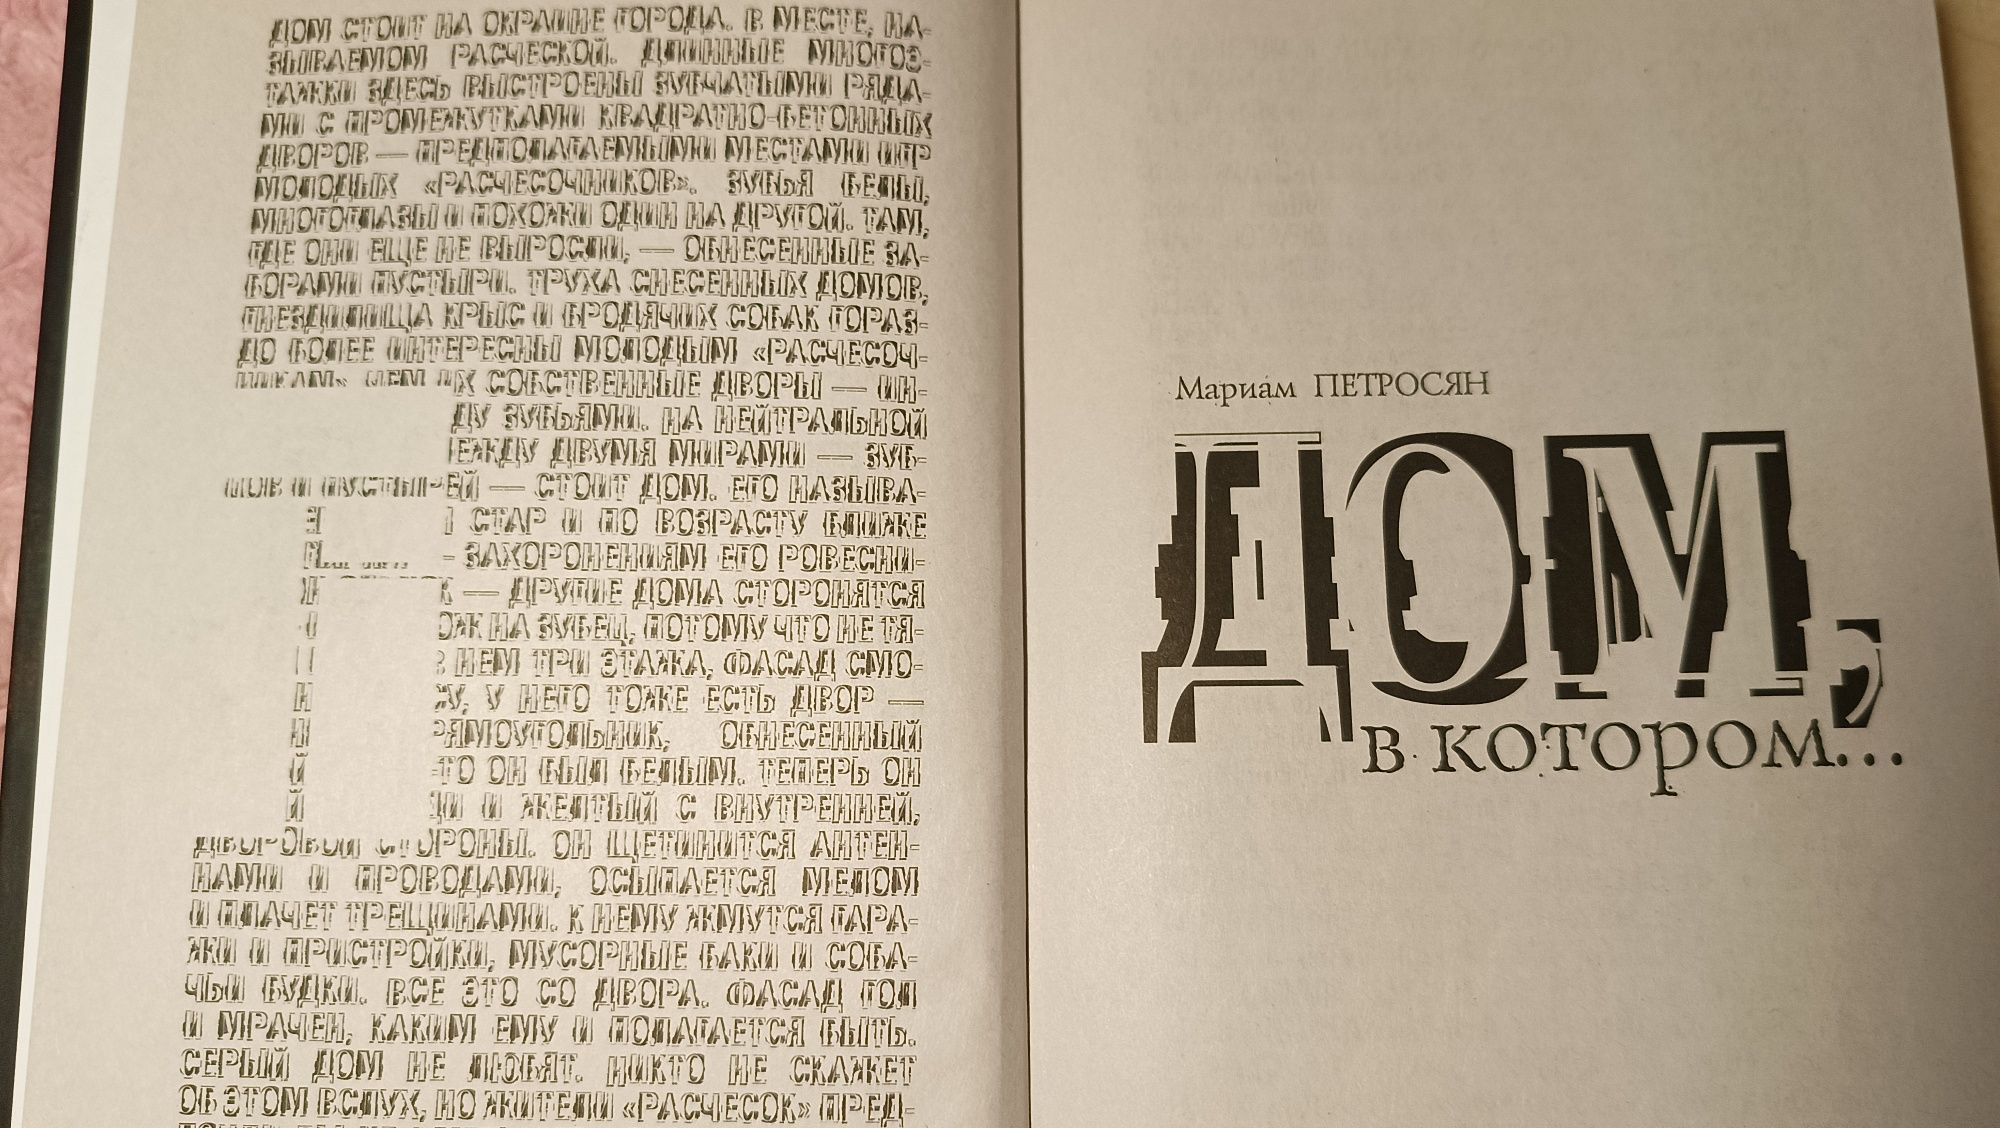 ДОМ СТОИТ НА ОКРАИНЕ ГОРОДА. В МЕСТЕ, НА-
ЗЫВАЕМОМ РАСЧЕСКОЙ. ДЛИННЫЕ МНОГОЭ-
ТАЖКИ ЗДЕСЬ ВЫСТРОЕНЫ ЗУБЧАТЫМИ РЯДА-
МИ С ПРОМЕЖУТКАМИ КВАДРАТНО-БЕТОННЫХ
ДВОРОВ — ПРЕДПОЛАГАЕМЫМИ МЕСТАМИ ИГР
МОЛОДЫХ «РАСЧЕСОЧНИКОВ». ЗУБЬЯ БЕЛЫ,
МНОГОГЛАЗЫ И ПОХОЖИ ОДИН НА ДРУГОЙ. ТАМ,
ГДЕ ОНИ ЕЩЕ НЕ ВЫРОСЛИ, — ОБНЕСЕННЫЕ ЗА-
БОРАМИ ПУСТЫРИ. ТРУХА СНЕСЕННЫХ ДОМОВ,
ГНЕЗДИЛИЩА КРЫС И БРОДЯЧИХ СОБАК ГОРАЗ-
ДО БОЛЕЕ ИНТЕРЕСНЫ МОЛОДЫМ «РАСЧЕСОЧ-
НИКАМ» ЧЕМ ИХ СОБСТВЕННЫЕ ДВОРЫ — ИН-
ДУ ЗУБЬЯМИ. НА НЕЙТРАЛЬНОЙ
ЕЖДУ ДВУМЯ МИРАМИ — ЗУБ-
ЦОВ И ПУСТЫРЕЙ — СТОИТ ДОМ. ЕГО НАЗЫВА-
СТАР И ПО ВОЗРАСТУ БЛИЖЕ
ЗАХОРОНЕНИЯМ ЕГО РОВЕСНИ-
К — ДРУГИЕ ДОМА СТОРОНЯТСЯ
ОЖ НА ЗУБЕЦ, ПОТОМУ ЧТО НЕ ТЯ-
В НЕМ ТРИ ЭТАЖА, ФАСАД СМО-
У, У НЕГО ТОЖЕ ЕСТЬ ДВОР —
РЯМОУГОЛЬНИК, ОБНЕСЕННЫЙ
ТО ОН БЫЛ БЕЛЫМ. ТЕПЕРЬ ОН
И ЖЕЛТЫЙ С ВНУТРЕННЕЙ,
ДВОРОВОЙ СТОРОНЫ. ОН ЩЕТИНИТСЯ АНТЕН-
НАМИ И ПРОВОДАМИ, ОСЫПАЕТСЯ МЕЛОМ
И ПЛАЧЕТ ТРЕЩИНАМИ. К НЕМУ ЖМУТСЯ ГАРА-
ЖИ И ПРИСТРОЙКИ, МУСОРНЫЕ БАКИ И СОБА-
ЧЬИ БУДКИ. ВСЕ ЭТО СО ДВОРА. ФАСАД ГОЛ
И МРАЧЕН, КАКИМ ЕМУ И ПОЛАГАЕТСЯ БЫТЬ.
СЕРЫЙ ДОМ НЕ ЛЮБЯТ. НИКТО НЕ СКАЖЕТ
ОБ ЭТОМ ВСЛУХ, НО ЖИТЕЛИ «РАСЧЕСОК» ПРЕД-
Мариам ПЕТРОСЯН
ДОМ,
в котором...